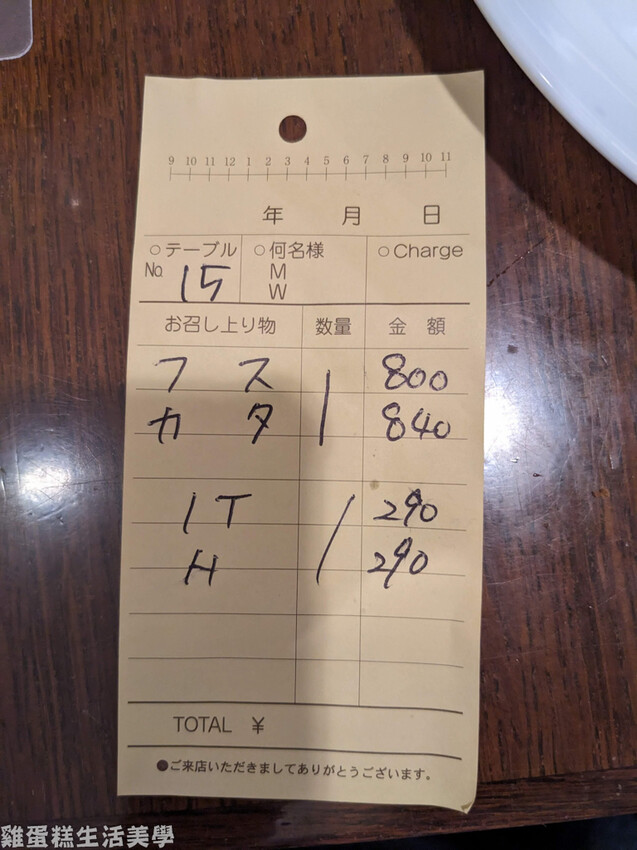 9 10 11 12 1 2 3 4 5 6 7 8 9 10 11
年 月 日
○テーブル ○何名様 ○Charge
No. 15 M
W
お召し上り物 数量 金額
フ ス 1 800
カ タ 840
IT 1 290
H 290
TOTAL ¥
●ご来店いただきましてありがとうございます。
雞蛋糕生活美學